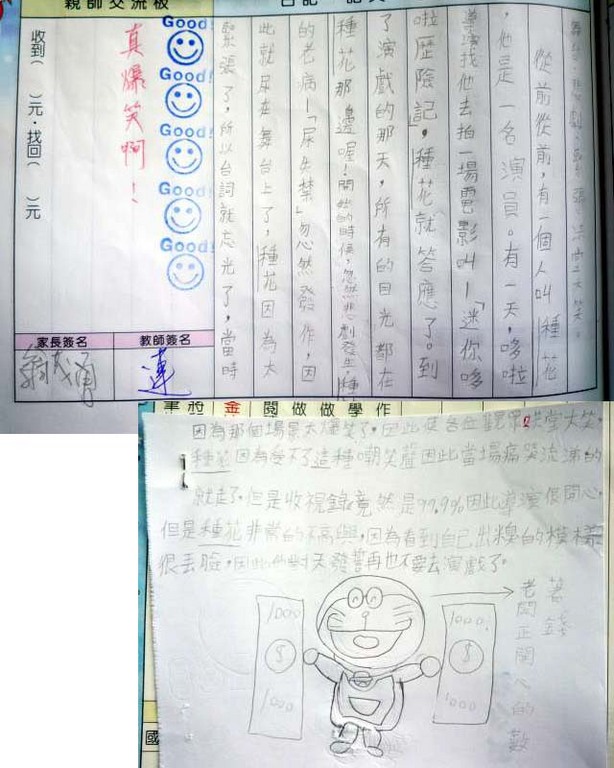 親師交流板
日記
從前從前，有一個人叫種花
，他是一名演員。有一天，哆啦
導演找他去拍一場電影叫—「迷你哆
啦歷險記」，種花就答應了。到
了演戲的那天，所有的目光都在
種花那邊喔！開始的時候，忽然悲劇發生，種花
的老病—「尿失禁」忽然發作，因
此就尿在舞台上了，種花因為太
緊張了，所以台詞就忘光了，當時
Good!
Good!
Good!
Good!
Good!
真爆笑啊！
收到（　）元，找回（　）元
家長簽名
教師簽名
連
金 閱 做 做 學 作
因為那個場景太爆笑了，因此使各位觀眾哄堂大笑，
種花因為受不了這種嘲笑聲因此當場痛哭流涕的
就走了。但是收視錄竟然是99.9%因此導演很開心，
但是種花非常的不高興，因為看到自己出糗的模樣
很丟臉，因此他對天發誓再也不要去演戲了。
1000
$
1000
1000
$
1000
老闆正開心的數
著錢
國